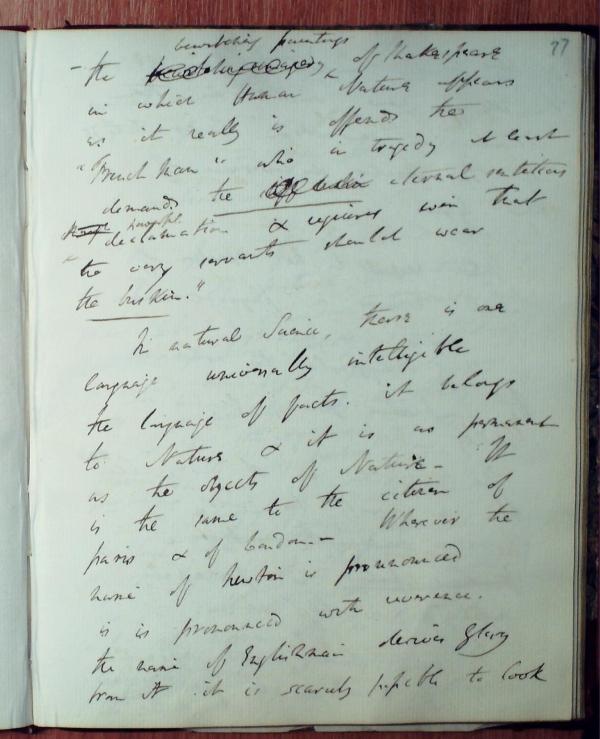 77
bewitching paintings
- the of Shakespeare
in which Human Nature appears
as it really is offends the
"French Man" who in tragedy at least
demands the eternal
declamation & requires even that
the very servants should wear
the buskin."
In natural Science, there is one
language universally intelligible
the language of facts. it belongs
to Nature & it is as permanent
as the objects of Nature - It
is the same to the citizen of
paris & of London - Wherever the
name of Newton is pronounced
is is pronounced with reverence.
the name of Englishman derives Glory
from it it is scarcely possible to look